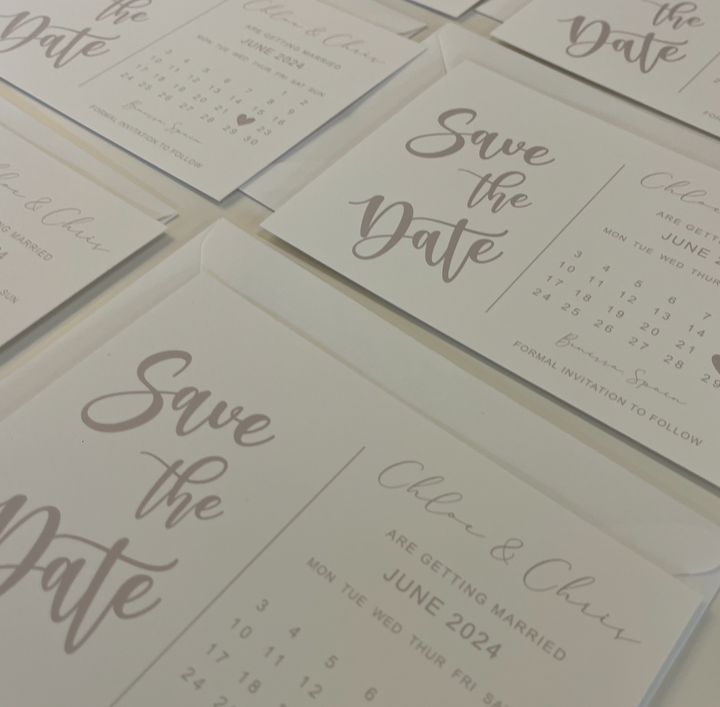 the
Date
Chloe & Chris
ARE GETTING MARRIED
JUNE 2024
MON TUE WED THUR FRI SAT SUN
1 2
3 4 5 6 7 8 9
10 11 12 13 14 15 16
17 18 19 20 21 ♥ 23
24 25 26 27 28 29 30
Benissa Spain
FORMAL INVITATION TO FOLLOW
the
Date
& Chris
MARRIED
SUN
Save
the
Date
Chloe
ARE
JUNE
MON TUE WED THUR
3 4 5 6 7
10 11 12 13 14
17 18 19 20 21 ♥
24 25 26 27 28 29
Benissa Spain
FORMAL INVITATION TO FOLLOW
Save
the
Date
Chloe & Chris
ARE GETTING MARRIED
JUNE 2024
MON TUE WED THUR FRI
3 4 5 6
10 11 12
17 18
24